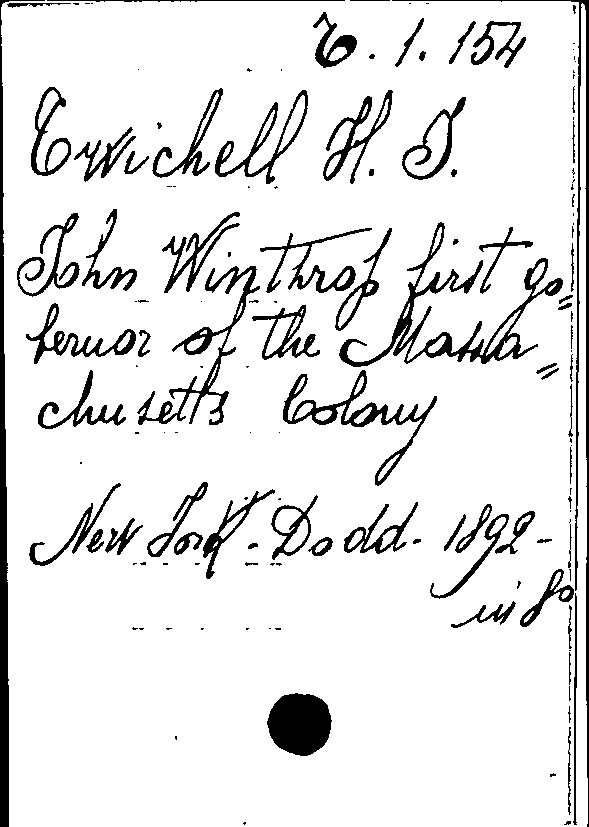 T. 1. 154
Twichell H. J.
John Winthrop first go=
bernor of the Massa=
chusetts Colony
New York - Dodd - 1892 -
in 8º